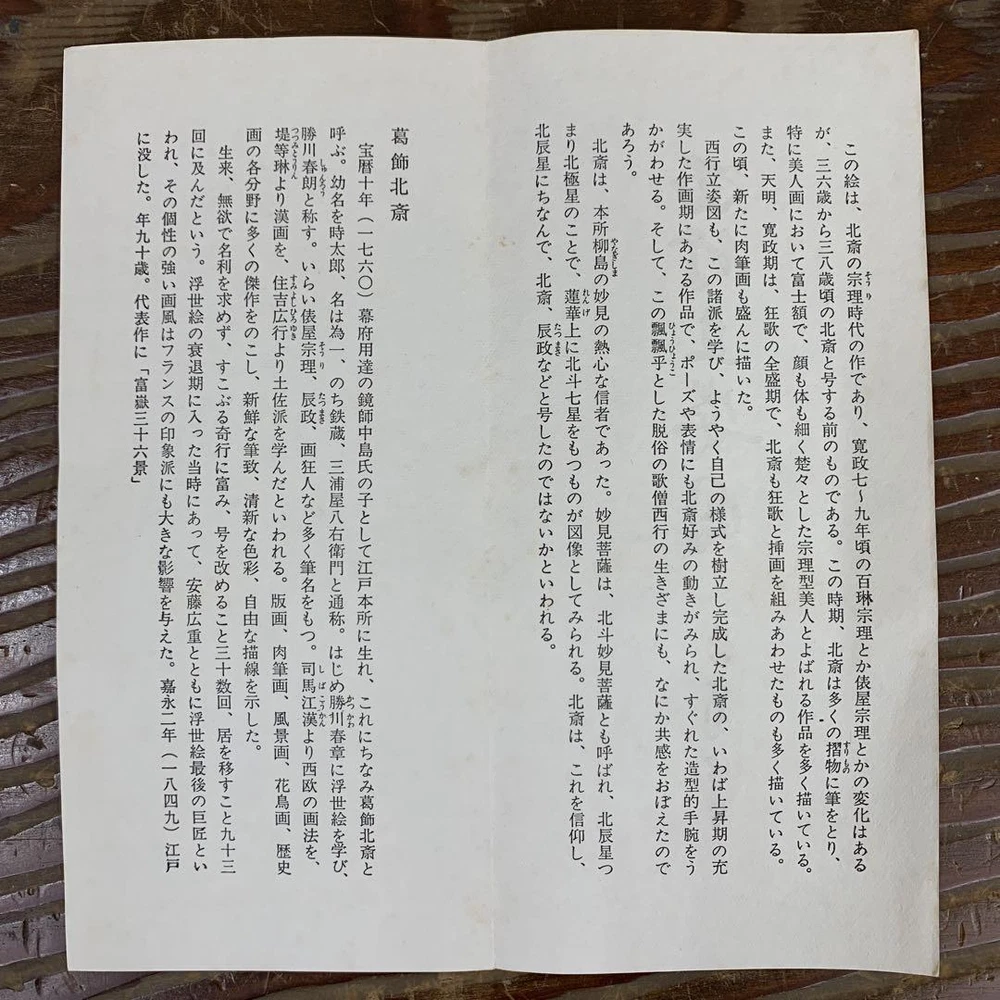 この絵は、北斎の宗理時代の作であり、寛政七〜九年頃の百琳宗理とか俵屋宗理とかの変化はある
が、三六歳から三八歳頃の北斎と号する前のものである。この時期、北斎は多くの摺物に筆をとり、
特に美人画において富士額で、顔も体も細く楚々とした宗理型美人とよばれる作品を多く描いている。
また、天明、寛政期は、狂歌の全盛期で、北斎も狂歌と挿画を組みあわせたものも多く描いている。
この頃、新たに肉筆画も盛んに描いた。
西行立姿図も、この諸派を学び、ようやく自己の様式を樹立し完成した北斎の、いわば上昇期の充
実した作画期にあたる作品で、ポーズや表情にも北斎好みの動きがみられ、すぐれた造型的手腕をう
かがわせる。そして、この飄飄乎とした脱俗の歌僧西行の生きざまにも、なにか共感をおぼえたので
あろう。
北斎は、本所柳島の妙見の熱心な信者であった。妙見菩薩は、北斗妙見菩薩とも呼ばれ、北辰星つ
まり北極星のことで、蓮華上に北斗七星をもつものが図像としてみられる。北斎は、これを信仰し、
北辰星にちなんで、北斎、辰政などと号したのではないかといわれる。
葛飾北斎
宝暦十年（一七六〇）幕府用達の鏡師中島氏の子として江戸本所に生れ、これにちなみ葛飾北斎と
呼ぶ。幼名を時太郎、名は為一、のち鉄蔵、三浦屋八右衛門と通称。はじめ勝川春章に浮世絵を学び、
勝川春朗と称す。いらい俵屋宗理、辰政、画狂人など多く筆名をもつ。司馬江漢より西欧の画法を、
堤等琳より漢画を、住吉広行より土佐派を学んだといわれる。版画、肉筆画、風景画、花鳥画、歴史
画の各分野に多くの傑作をのこし、新鮮な筆致、清新な色彩、自由な描線を示した。
生来、無欲で名利を求めず、すこぶる奇行に富み、号を改めること三十数回、居を移すこと九十三
回に及んだという。浮世絵の衰退期に入った当時にあって、安藤広重とともに浮世絵最後の巨匠とい
われ、その個性の強い画風はフランスの印象派にも大きな影響を与えた。嘉永二年（一八四九）江戸
に没した。年九十歳。代表作に「富嶽三十六景」